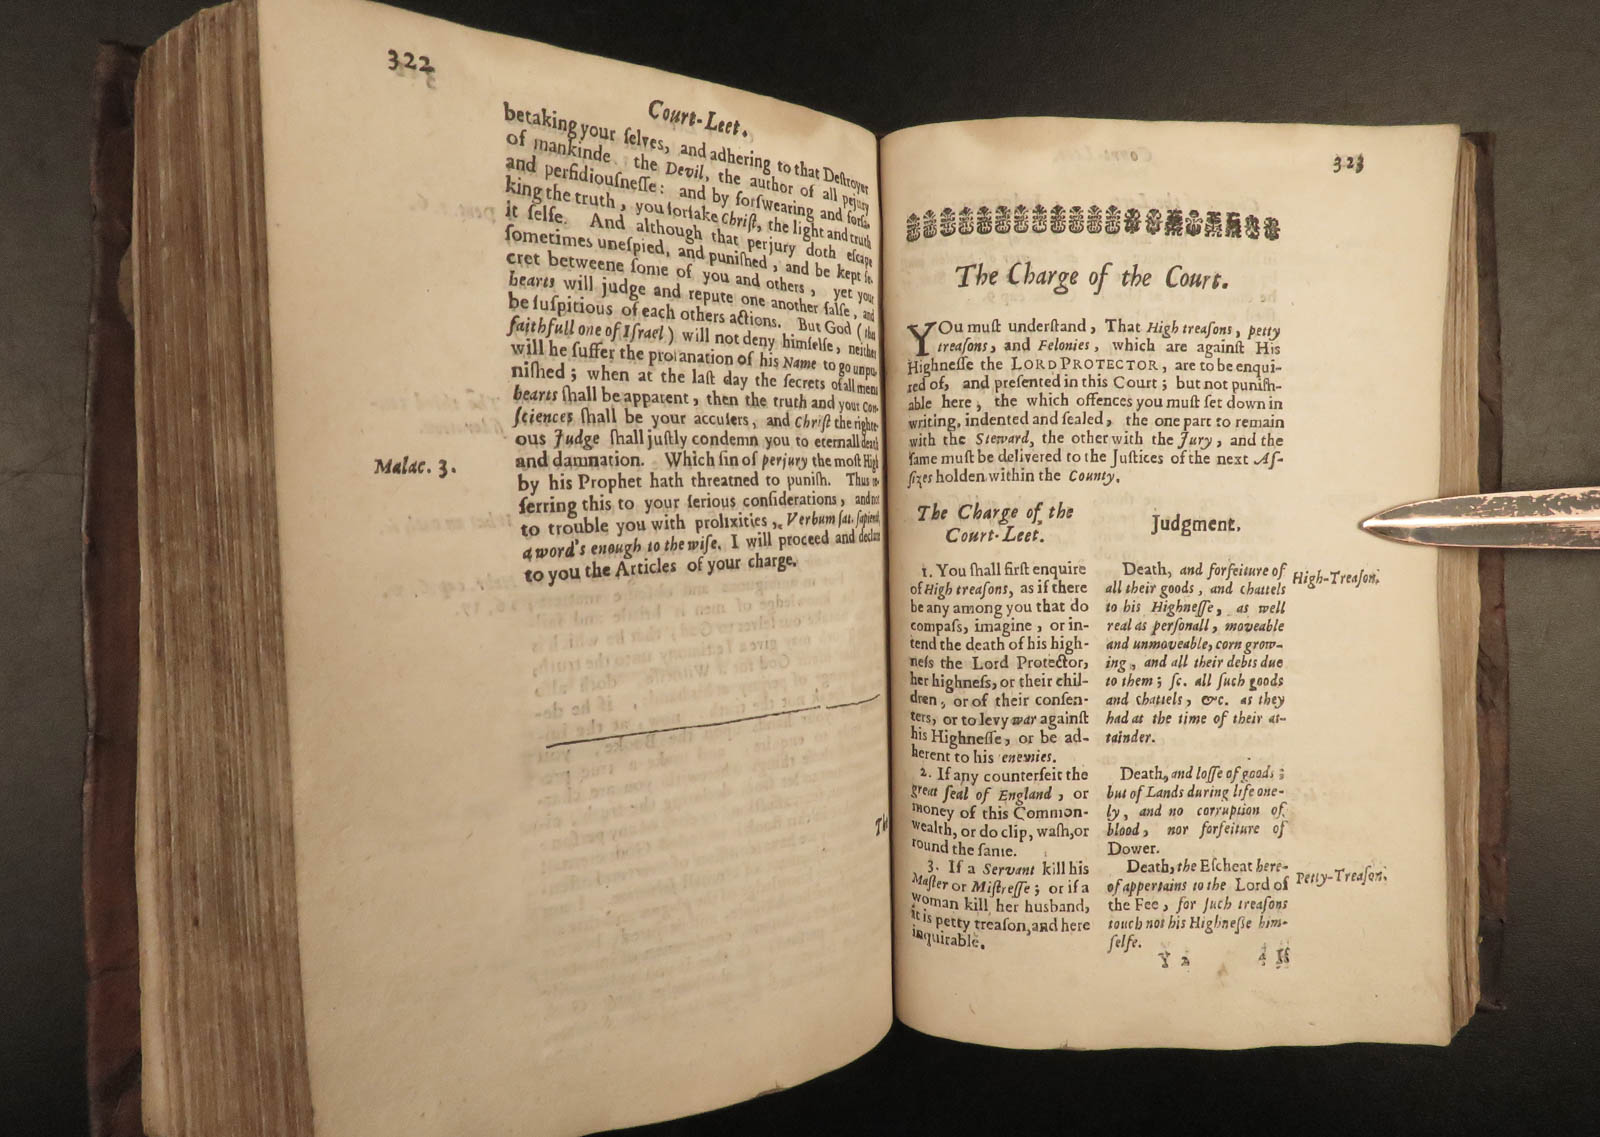 322
Court-Leet.
betaking your ſelves, and adhering to that Deſtroyer
of mankinde the Devil, the author of all perjury
and perfidiouſneſſe: and by forſwearing and forſa-
king the truth, you forſake Chriſt, the light and truth
it ſelfe. And although that perjury doth eſcape
ſometimes uneſpied, and puniſhed, and be kept ſe-
cret betweene ſome of you and others, yet your
hearts will judge and repute one another falſe, and
be ſuſpitious of each others actions. But God (the
faithfull one of Iſrael) will not deny himſelfe, neither
will he ſuffer the profanation of his Name to go unpu-
niſhed; when at the laſt day the ſecrets of all mens
hearts ſhall be apparent, then the truth and your Con-
ſciences ſhall be your accuſers, and Chriſt the righte-
ous Judge ſhall juſtly condemn you to eternall death
and damnation. Which ſin of perjury the moſt High
Malac. 3.
by his Prophet hath threatned to puniſh. Thus re-
ferring this to your ſerious conſiderations, and not
to trouble you with prolixities, Verbum ſat. ſapienti,
a word's enough to the wiſe. I will proceed and declare
to you the Articles of your charge.
The
323
The Charge of the Court.
YOu muſt underſtand, That High treaſons, petty
treaſons, and Felonies, which are againſt His
Highneſſe the LORD PROTECTOR, are to be enqui-
red of, and preſented in this Court; but not puniſh-
able here, the which offences you muſt ſet down in
writing, indented and ſealed, the one part to remain
with the Steward, the other with the Jury, and the
ſame muſt be delivered to the Juſtices of the next Aſ-
ſizes holden within the County.
The Charge of the
Court-Leet.
1. You ſhall firſt enquire
of High treaſons, as if there
be any among you that do
compaſs, imagine, or in-
tend the death of his high-
neſs the Lord Protector,
her highneſs, or their chil-
dren, or of their conſen-
ters, or to levy war againſt
his Highneſſe, or be ad-
herent to his enemies.
2. If any counterfeit the
great ſeal of England, or
money of this Common-
wealth, or do clip, waſh, or
round the ſame.
3. If a Servant kill his
Maſter or Miſtreſſe; or if a
woman kill her husband,
it is petty treaſon, and here
inquirable.
Judgment.
Death, and forfeiture of
all their goods, and chattels
to his Highneſſe, as well
real as perſonall, moveable
and unmoveable, corn grow-
ing, and all their debts due
to them; ſc. all ſuch goods
and chattels, &c. as they
had at the time of their at-
tainder.
Death, and loſſe of goods;
but of Lands during life one-
ly, and no corruption of
blood, nor forfeiture of
Dower.
Death, the Eſcheat here-
of appertains to the Lord of
the Fee, for ſuch treaſons
touch not his Highneſſe him-
ſelfe.
High-Treaſon.
Petty-Treaſon.